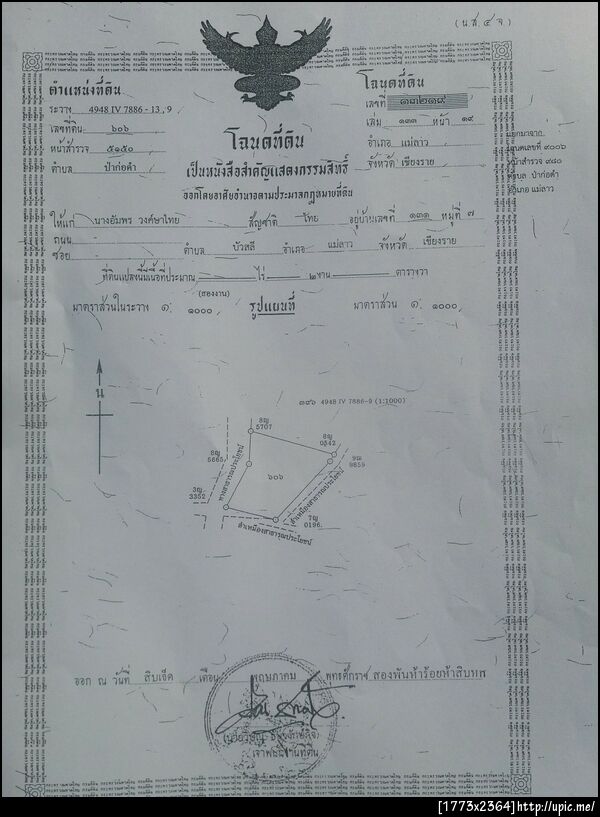 (น.ส. ๔ จ)
ตำแหน่งที่ดิน
ระวาง 4948 IV 7886 - 13 , 9
เลขที่ดิน ๖๐๖
หน้าสำรวจ ๕๑๕๐
ตำบล ป่าก่อดำ
โฉนดที่ดิน
เลขที่ ๑๓๒๑๙
เล่ม ๑๓๓ หน้า ๑๙
อำเภอ แม่ลาว
จังหวัด เชียงราย
โฉนดที่ดิน
เป็นหนังสือสำคัญแสดงกรรมสิทธิ์
ออกโดยอาศัยอำนาจตามประมวลกฎหมายที่ดิน
แยกมาจาก
หน้าสำรวจ ๙๘๐
ตำบล ป่าก่อดำ
อำเภอ แม่ลาว
ให้แก่ นางอัมพร วงค์ษาไทย สัญชาติ ไทย อยู่บ้านเลขที่ ๑๓๑ หมู่ที่ ๗
ถนน
ซอย ตำบล บัวสลี อำเภอ แม่ลาว จังหวัด เชียงราย
ที่ดินแปลงนี้มีเนื้อที่ประมาณ ไร่ ๒ งาน ตารางวา
(สองงาน)
มาตราส่วนในระวาง ๑: ๑๐๐๐ รูปแผนที่ มาตราส่วน ๑: ๑๐๐๐
น
๓๙๖ 4948 IV 7886-9 (1:1000)
8ญ
5707
8ญ
0542
8ญ
5665
9ฒ
9859
๖๐๖
3ญ
3352
7ญ
0196
ทางสาธารณประโยชน์
ลำเหมืองสาธารณประโยชน์
ลำเหมืองสาธารณประโยชน์
ออก ณ วันที่ สิบเอ็ด เดือน พฤษภาคม พุทธศักราช สองพันห้าร้อยห้าสิบหก
เจ้าพนักงานที่ดิน
[1773x2364]http://upic.me/